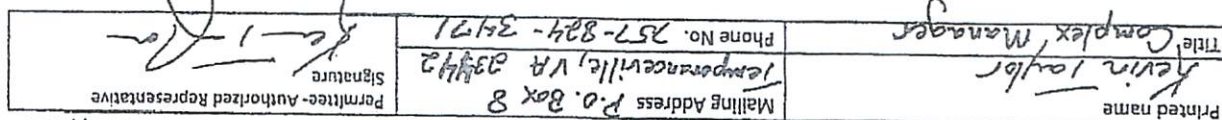 Printed name
Kevin Taylor
Title Complex Manager
Mailing Address P.O. Box 8
Temperanceville, VA 23442
Phone No. 757-824-3471
Permittee- Authorized Representative
Signature